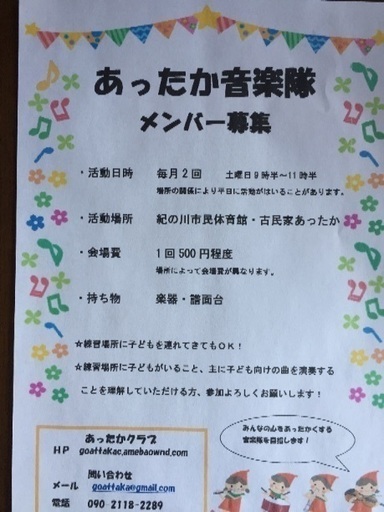 あったか音楽隊
メンバー募集
・活動日時　毎月2回　土曜日9時半～11時半
場所の関係により平日に活動がはいることがあります。
・活動場所　紀の川市民体育館・古民家あったか
・会場費　1回500円程度
場所によって会場費が異なります。
・持ち物　楽器・譜面台
☆練習場所に子どもを連れてきてもOK！
☆練習場所に子どもがいること、主に子ども向けの曲を演奏する
ことを理解していただける方、参加よろしくお願いします！
あったかクラブ
HP　goattakac.amebaownd.com
問い合わせ
メール　goattaka@gmail.com
電話　090-2118-2289
みんなの心をあったかくする
音楽隊を目指します！